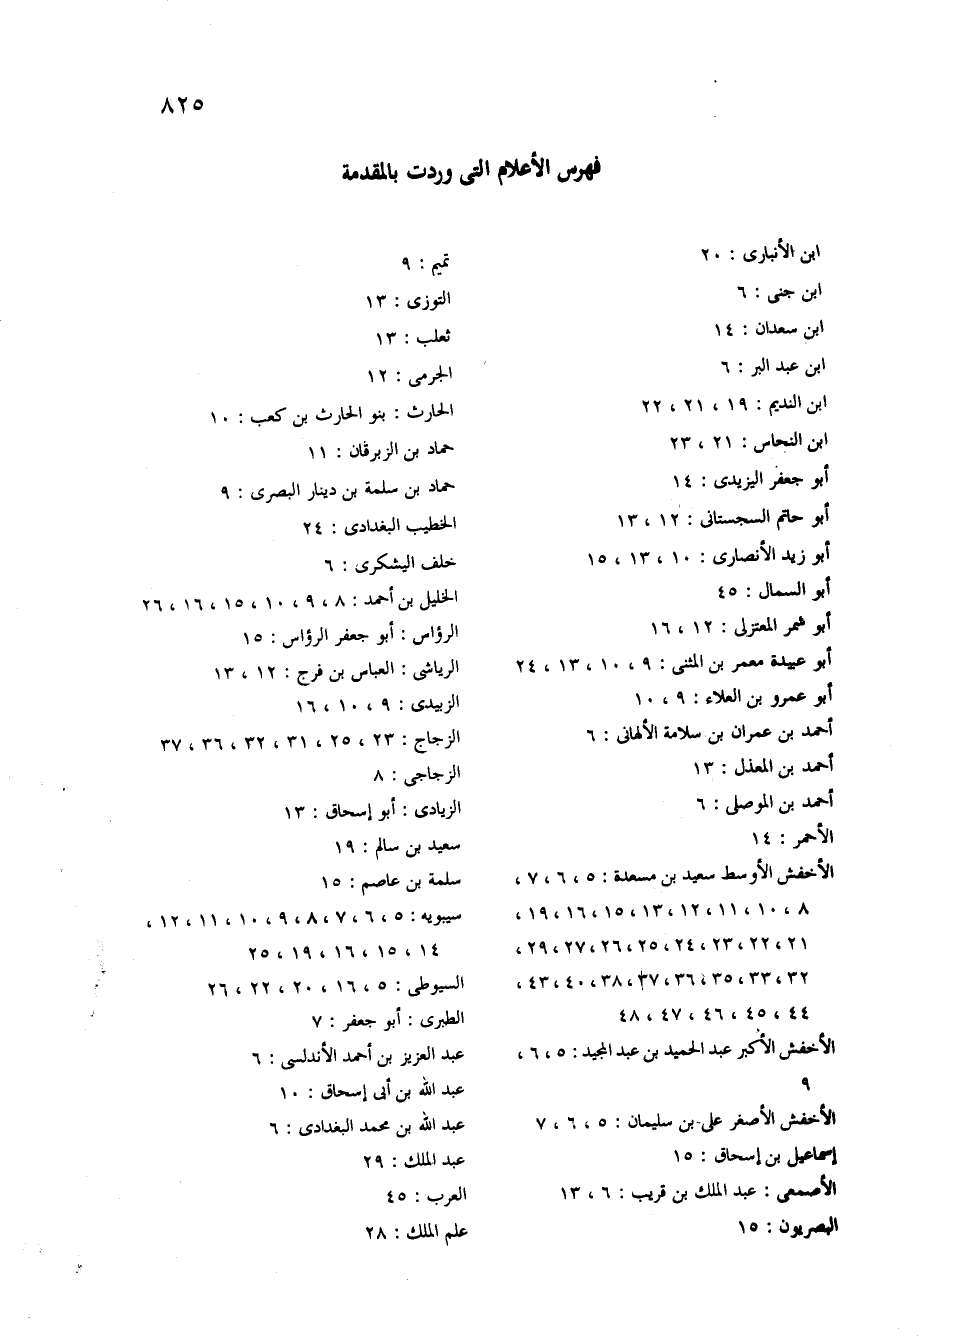 ٨٢٥
فهرس الأعلام التى وردت بالمقدمة
ابن الأنبارى : ٢٠
ابن جنى : ٦
ابن سعدان : ١٤
ابن عبد البر : ٦
ابن النديم : ١٩ ، ٢١ ، ٢٢
ابن النحاس : ٢١ ، ٢٣
أبو جعفر اليزيدى : ١٤
أبو حاتم السجستانى : ١٢ ، ١٣
أبو زيد الأنصارى : ١٠ ، ١٣ ، ١٥
أبو السمال : ٤٥
أبو شمر المعتزلى : ١٢ ، ١٦
أبو عبيدة معمر بن المثنى : ٩ ، ١٠ ، ١٣ ، ٢٤
أبو عمرو بن العلاء : ٩ ، ١٠
أحمد بن عمران بن سلامة الألهانى : ٦
أحمد بن المعذل : ١٣
أحمد بن الموصلى : ٦
الأحمر : ١٤
الأخفش الأوسط سعيد بن مسعدة : ٥ ، ٦ ، ٧ ،
٨ ، ١٠ ، ١١ ، ١٢ ، ١٣ ، ١٥ ، ١٦ ، ١٩ ،
٢١ ، ٢٢ ، ٢٣ ، ٢٤ ، ٢٥ ، ٢٦ ، ٢٧ ، ٢٩ ،
٣٢ ، ٣٣ ، ٣٥ ، ٣٦ ، ٣٧ ، ٣٨ ، ٤٠ ، ٤٣ ،
٤٤ ، ٤٥ ، ٤٦ ، ٤٧ ، ٤٨
الأخفش الأكبر عبد الحميد بن عبد المجيد : ٥ ، ٦ ،
٩
الأخفش الأصغر على بن سليمان : ٥ ، ٦ ، ٧
إسماعيل بن إسحاق : ١٥
الأصمعى : عبد الملك بن قريب : ٦ ، ١٣
البصريون : ١٥
تميم : ٩
التوزى : ١٣
ثعلب : ١٣
الجرمى : ١٢
الحارث : بنو الحارث بن كعب : ١٠
حماد بن الزبرقان : ١١
حماد بن سلمة بن دينار البصرى : ٩
الخطيب البغدادى : ٢٤
خلف اليشكرى : ٦
الخليل بن أحمد : ٨ ، ٩ ، ١٠ ، ١٥ ، ١٦ ، ٢٦
الرؤاس : أبو جعفر الرؤاس : ١٥
الرياشى : العباس بن فرج : ١٢ ، ١٣
الزبيدى : ٩ ، ١٠ ، ١٦
الزجاج : ٢٣ ، ٢٥ ، ٣١ ، ٣٢ ، ٣٦ ، ٣٧
الزجاجى : ٨
الزيادى : أبو إسحاق : ١٣
سعيد بن سالم : ١٩
سلمة بن عاصم : ١٥
سيبويه : ٥ ، ٦ ، ٧ ، ٨ ، ٩ ، ١٠ ، ١١ ، ١٢ ،
١٤ ، ١٥ ، ١٦ ، ١٩ ، ٢٥
السيوطى : ٥ ، ١٦ ، ٢٠ ، ٢٢ ، ٢٦
الطبرى : أبو جعفر : ٧
عبد العزيز بن أحمد الأندلسى : ٦
عبد الله بن أبى إسحاق : ١٠
عبد الله بن محمد البغدادى : ٦
عبد الملك : ٢٩
العرب : ٤٥
علم الملك : ٢٨